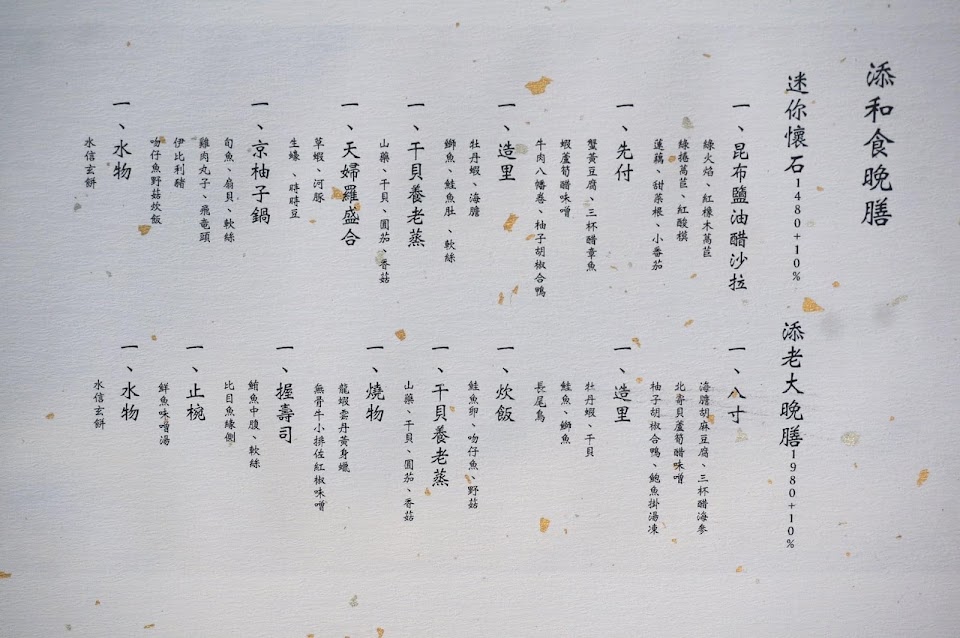 添和食晚膳
迷你懷石1480+10%
一、昆布鹽油醋沙拉
綠火焰、紅橡木萵苣
綠捲萵苣、紅酸模
蓮藕、甜菜根、小番茄
一、先付
蟹黃豆腐、三杯醋章魚
蝦蘆筍醋味噌
牛肉八幡卷、柚子胡椒合鴨
一、造里
牡丹蝦、海膽
鰤魚、鮭魚肚、軟絲
一、干貝養老蒸
山藥、干貝、圓茄、香菇
一、天婦羅盛合
草蝦、河豚
生蠔、時時豆
一、京柚子鍋
旬魚、扇貝、軟絲
雞肉丸子、飛竜頭
伊比利豬
吻仔魚野菇炊飯
一、水物
水信玄餅
添老大晚膳1980+10%
一、八寸
海膽胡麻豆腐、三杯醋海參
北寄貝蘆筍醋味噌
柚子胡椒合鴨、鮑魚掛湯凍
一、造里
牡丹蝦、干貝
鮭魚、鰤魚
長尾鳥
一、炊飯
鮭魚卵、吻仔魚、野菇
一、干貝養老蒸
山藥、干貝、圓茄、香菇
一、燒物
龍蝦雲丹黃身蠟
無骨牛小排佐紅椒味噌
一、握壽司
鮪魚中腹、軟絲
比目魚緣側
一、止椀
鮮魚味噌湯
一、水物
水信玄餅